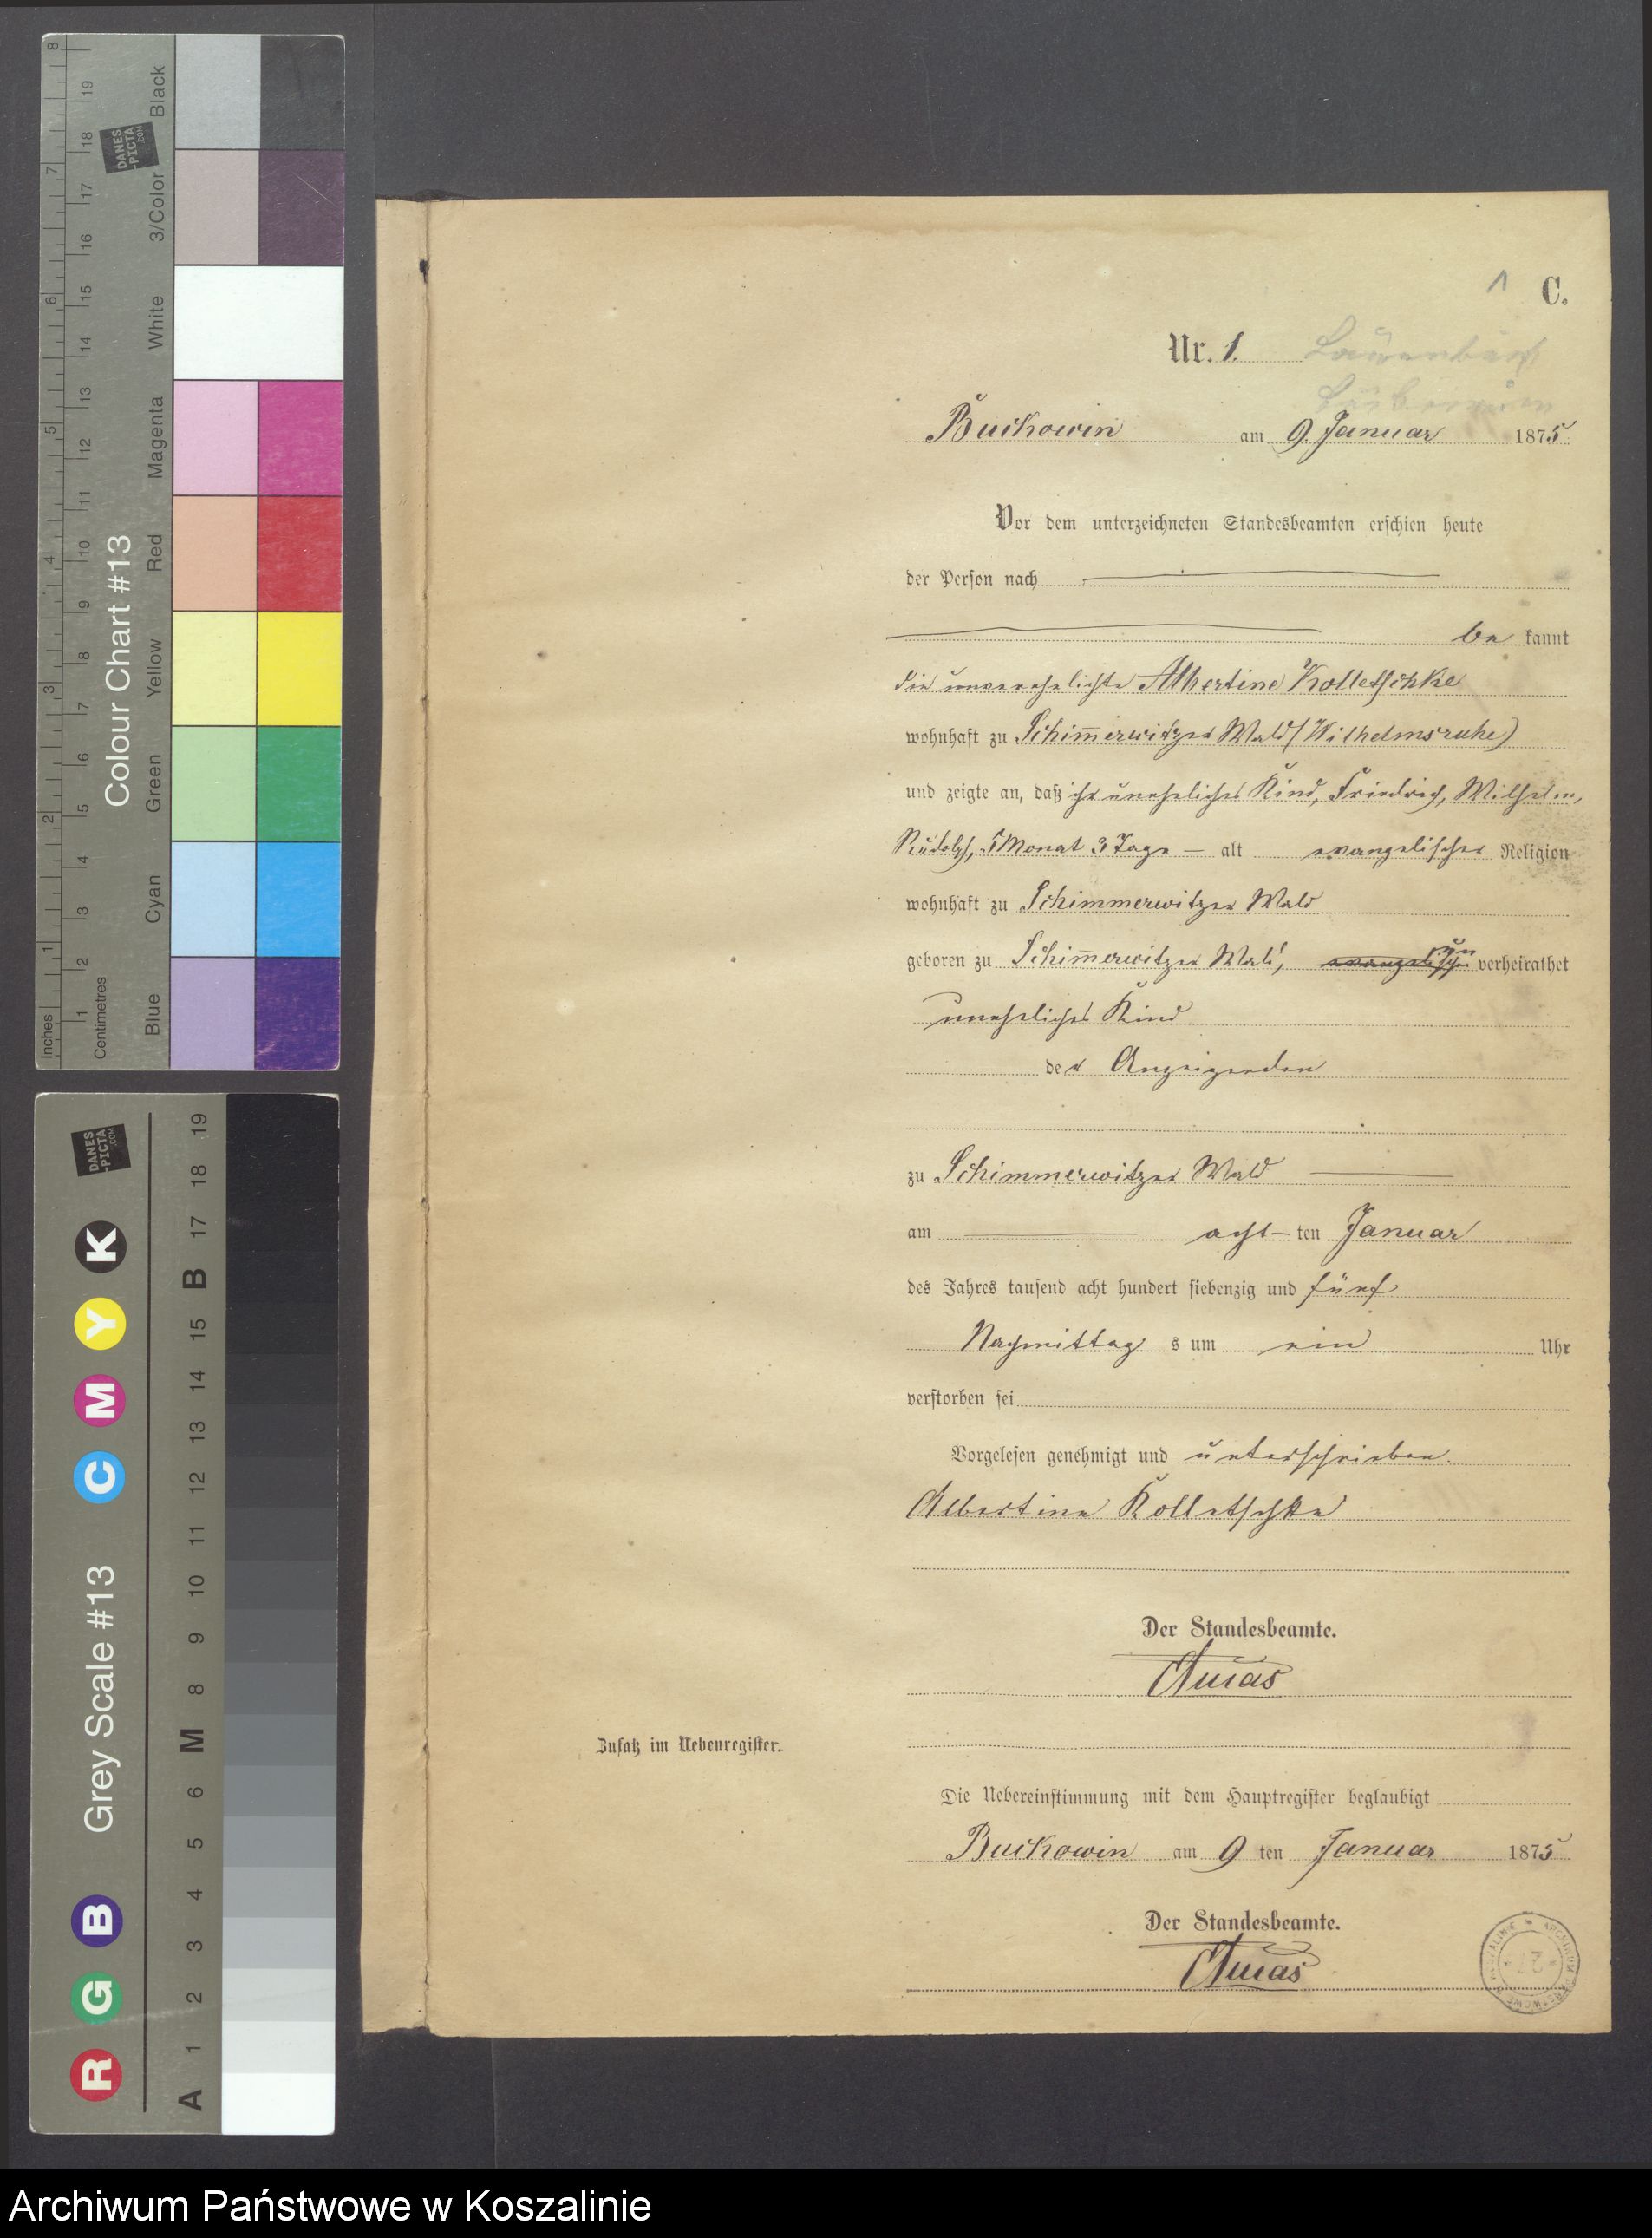 C.
Nr. 1.
Buckowin am 9. Januar 1875
Vor dem unterzeichneten Standesbeamten erschien heute
der Person nach
be kannt
die unverehelichte Albertine Kolletschke
wohnhaft zu Schim̅erwitzer Wald (Wilhelmsruhe)
und zeigte an, daß ihr uneheliches Kind, Friedrich, Wilhelm,
Rudolph, Monat 3 Tage — alt evangelischer Religion
wohnhaft zu Schimmerwitzer Wald
geboren zu Schim̅erwitzer Wald, un verheirathet
uneheliches Kind
der Anzeigenden
zu Schimmerwitzer Wald
am acht ten Januar
des Jahres tausend acht hundert siebenzig und fünf
Nachmittag s um ein Uhr
verstorben sei
Vorgelesen genehmigt und unterschrieben.
Albertine Kolletschke
Der Standesbeamte.
Zusatz im Nebenregister.
Die Uebereinstimmung mit dem Hauptregister beglaubigt
Buckowin am 9 ten Januar 1875
Der Standesbeamte.
Colour Chart #13
Blue Cyan Green Yellow Red Magenta White 3/Color Black
Inches 1 2 3 4 5 6 7 8
Centimetres 1 2 3 4 5 6 7 8 9 10 11 12 13 14 15 16 17 18 19
DANES
-PICTA
.COM
Grey Scale #13
R G B C M Y K
A 1 2 3 4 5 6 M 8 9 10 11 12 13 14 15 B 17 18 19
DANES
-PICTA
.COM
Archiwum Państwowe w Koszalinie